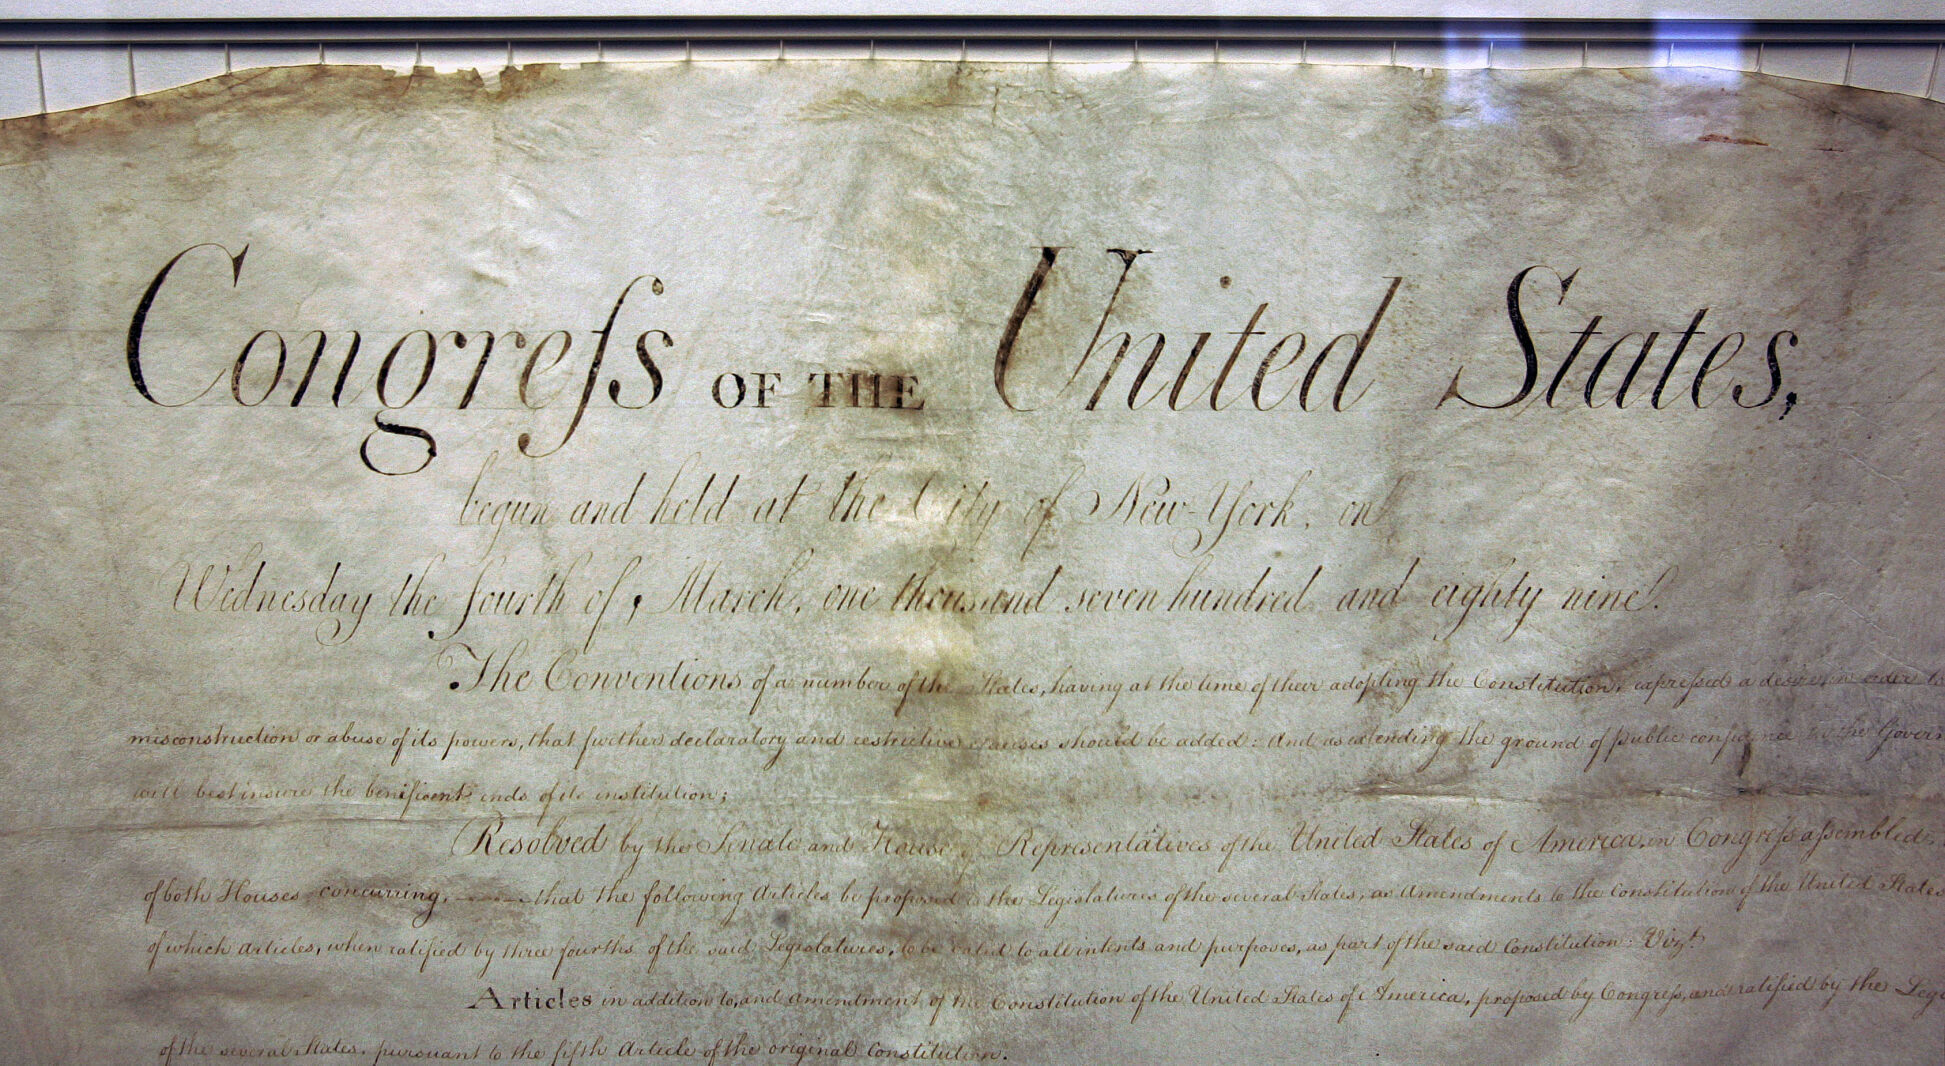 Congreſs OF THE United States,
begun and held at the City of New-York, on
Wednesday the fourth of March, one thousand seven hundred and eighty nine.
The Conventions of a number of the States, having at the time of their adopting the Constitution, expreſsed a desire, in order to
misconstruction or abuse of its powers, that further declaratory and restrictive clauses should be added: And as extending the ground of public confidence in the
will best insure the beneficent ends of its institution;
Resolved by the Senate and House of Representatives of the United States of America, in Congreſs aſsembled,
of both Houses concurring, that the following Articles be proposed to the Legislatures of the several States, as Amendments to the Constitution of the United States
of which Articles, when ratified by three fourths of the said Legislatures, to be valid to all intents and purposes, as part of the said Constitution: Vizt.
Articles in addition to, and amendment of the Constitution of the United States of America, proposed by Congreſs, and ratified by the
of the several States, pursuant to the fifth Article of the original Constitution.